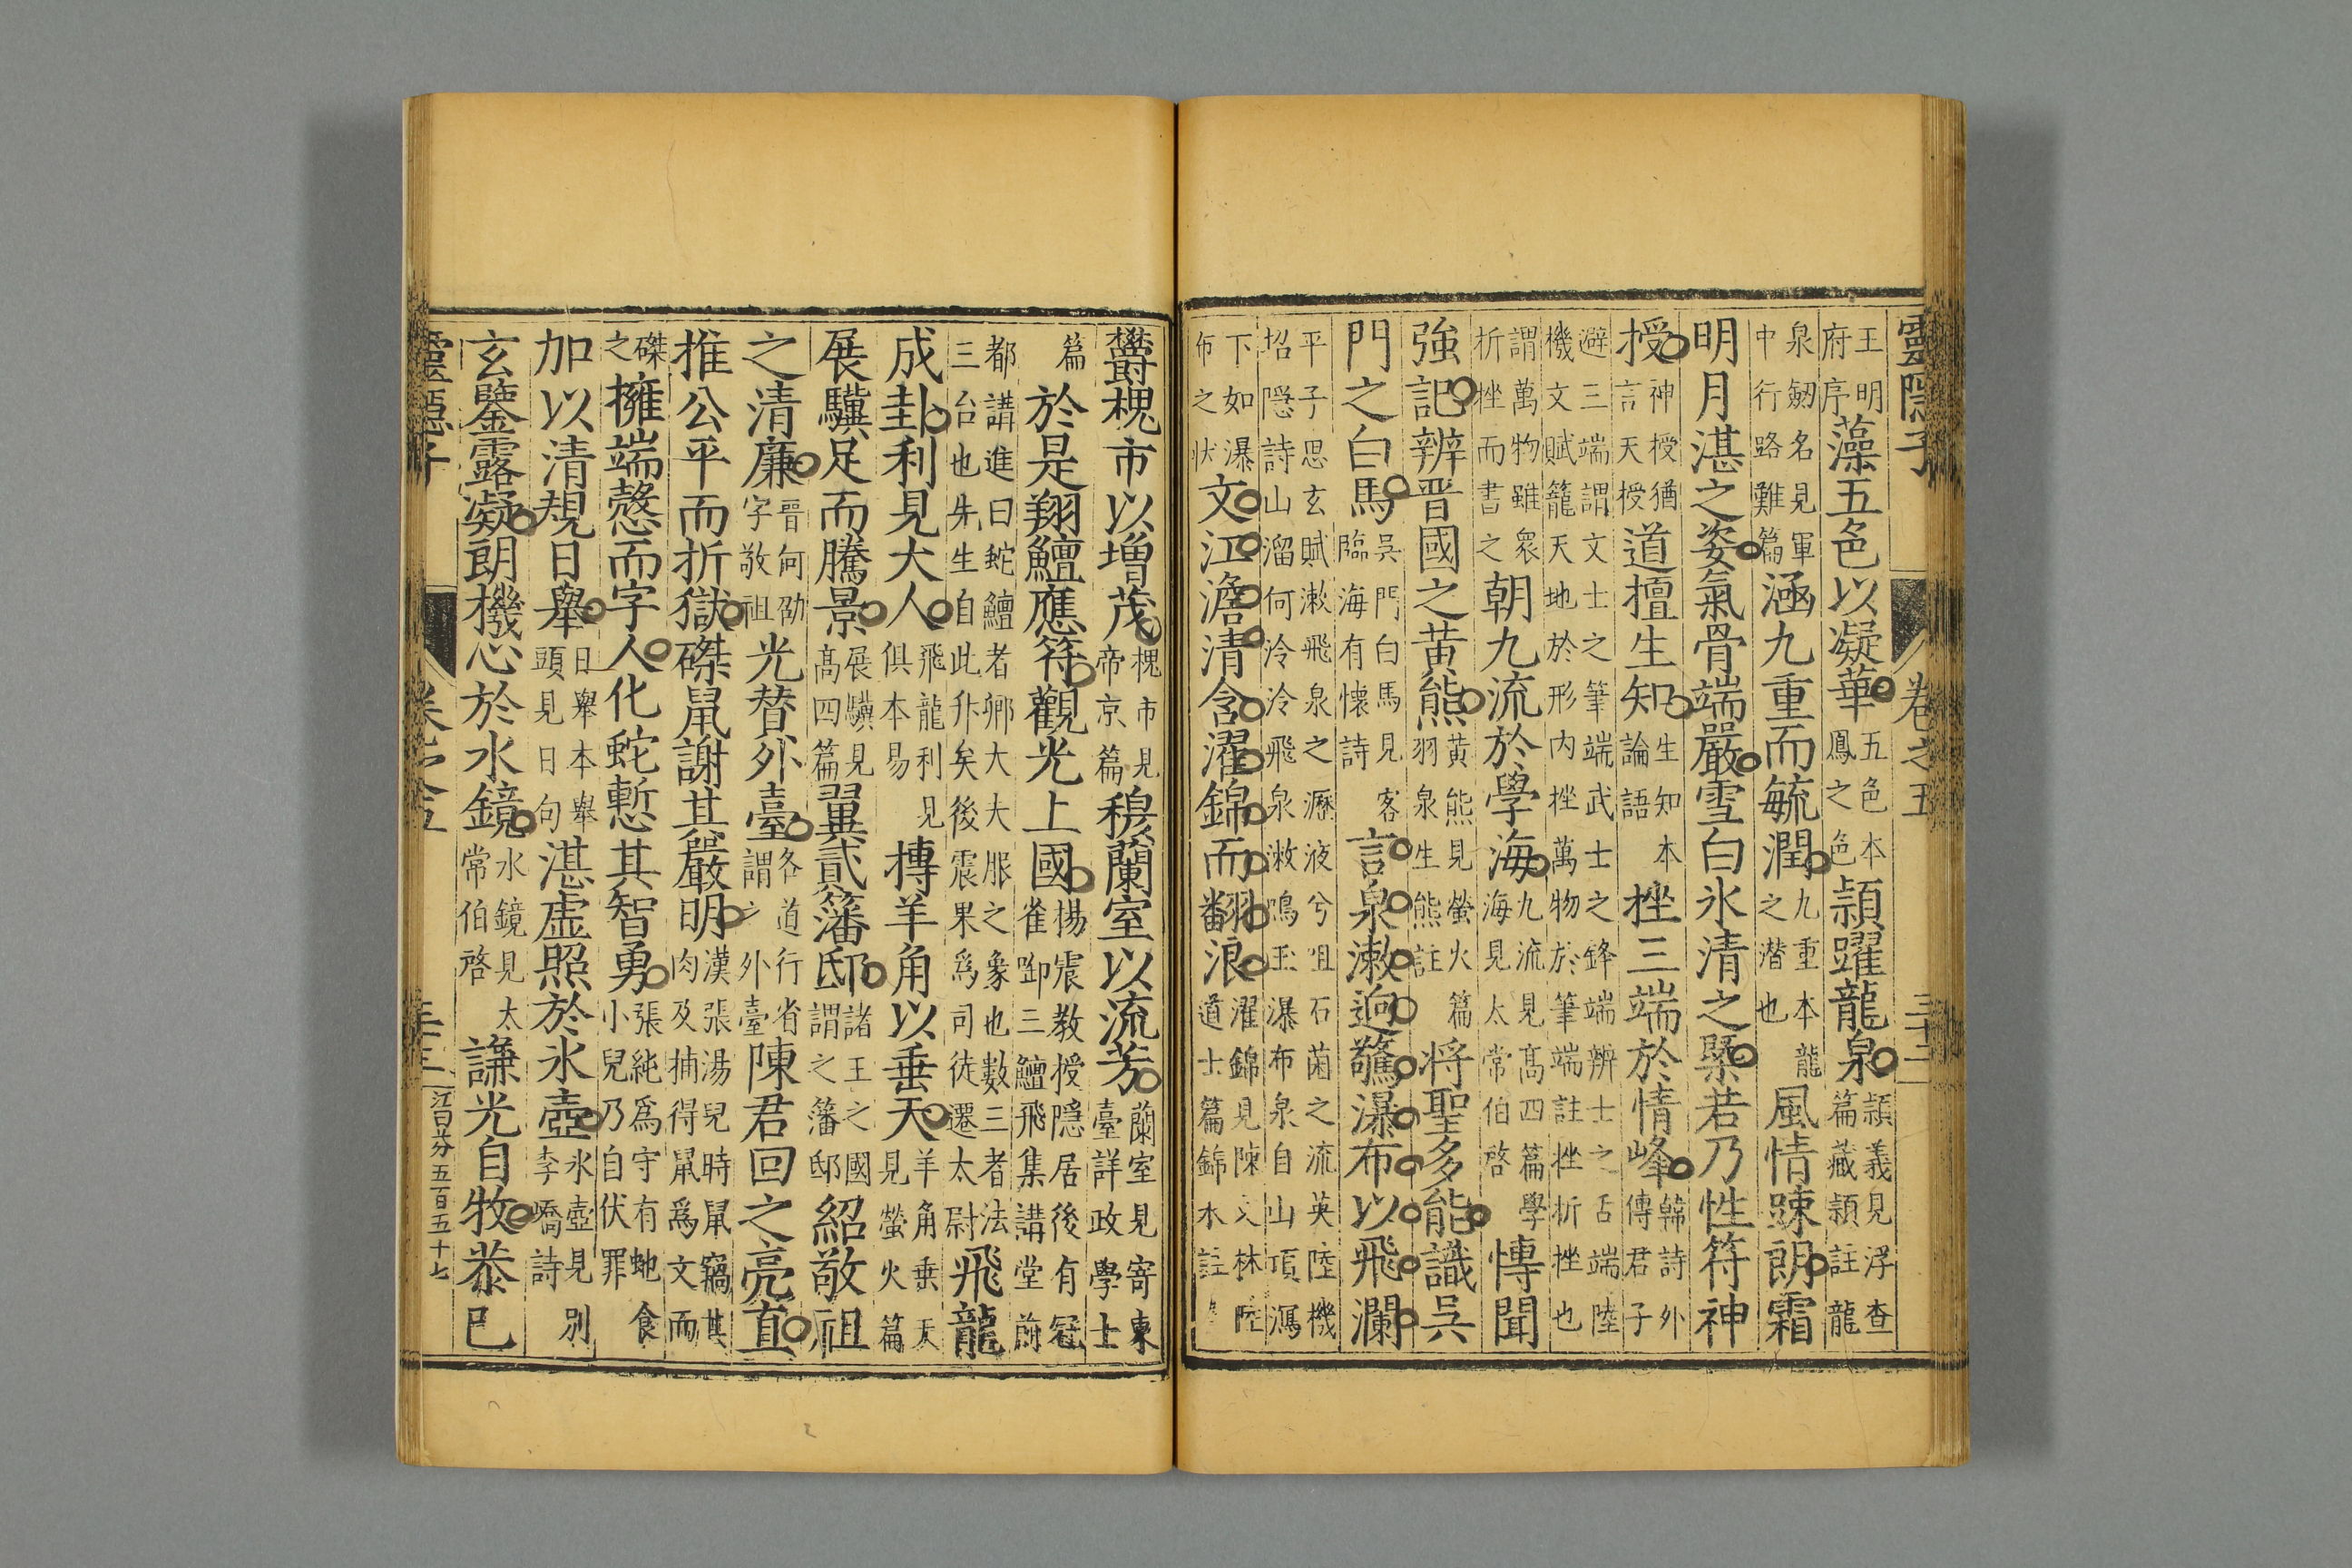 靈隱子 卷之五 三十二
王明府序藻五色以凝華五色本鳳之色頴躍龍泉頴義見浮查篇藏頴註龍
泉劒名見軍中行路難篇涵九重而毓潤九重本龍之潛也風情踈朗霜
明月湛之姿氣骨端嚴雪白氷清之槩若乃性符神
授神授猶言天授道擅生知生知本論語挫三端於情峰韓詩外傳君子
避三端謂文士之筆端武士之鋒端辨士之舌端陸機文賦籠天地於形内挫萬物於筆端註挫折挫也
謂萬物雖衆折挫而書之朝九流於學海九流見高四篇學海見太常伯啓慱聞
強記辨晋國之黃熊黃熊見螢火篇羽泉生熊註将聖多能識吳
門之白馬吳門白馬見客臨海有懷詩言泉漱迥驚瀑布以飛瀾
平子思玄賦漱飛泉之瀝液兮咀石菌之流英陸機招隱詩山溜何泠泠飛泉漱鳴玉瀑布泉自山頂瀉
下如瀑布之狀文江澹清含濯錦而翻浪濯錦見陳文林陸道士篇錦水註
欝槐市以增茂槐市見帝京篇穆蘭室以流芳蘭室見寄東臺詳政學士
篇於是翔鱣應符觀光上國楊震教授隱居後有冠雀啣三鱣飛集講堂前
都講進曰蛇鱣者卿大夫服之象也數三者法三台也先生自此升矣後震果爲司徒遷太尉飛龍
成卦利見大人飛龍利見俱本易摶羊角以垂天羊角垂天見螢火篇
展驥足而騰景展驥見高四篇翼貳藩邸諸王之國謂之藩邸紹敬祖
之清廉晋何劭字敬祖光替外臺各道行省謂之外臺陳君回之亮直
推公平而折獄磔鼠謝其嚴明漢張湯兒時鼠竊其肉及捕得鼠爲文而
磔之擁端愨而字人化蛇慙其智勇張純爲守有虵食小兒乃自伏罪
加以清規日舉日舉本舉頭見日句湛虚照於氷壺氷壺見别李嶠詩
玄鑒露凝朗機心於水鏡水鏡見太常伯啓謙光自牧恭巳
靈隱子 卷之五 三十三 江曰芬五百五十七